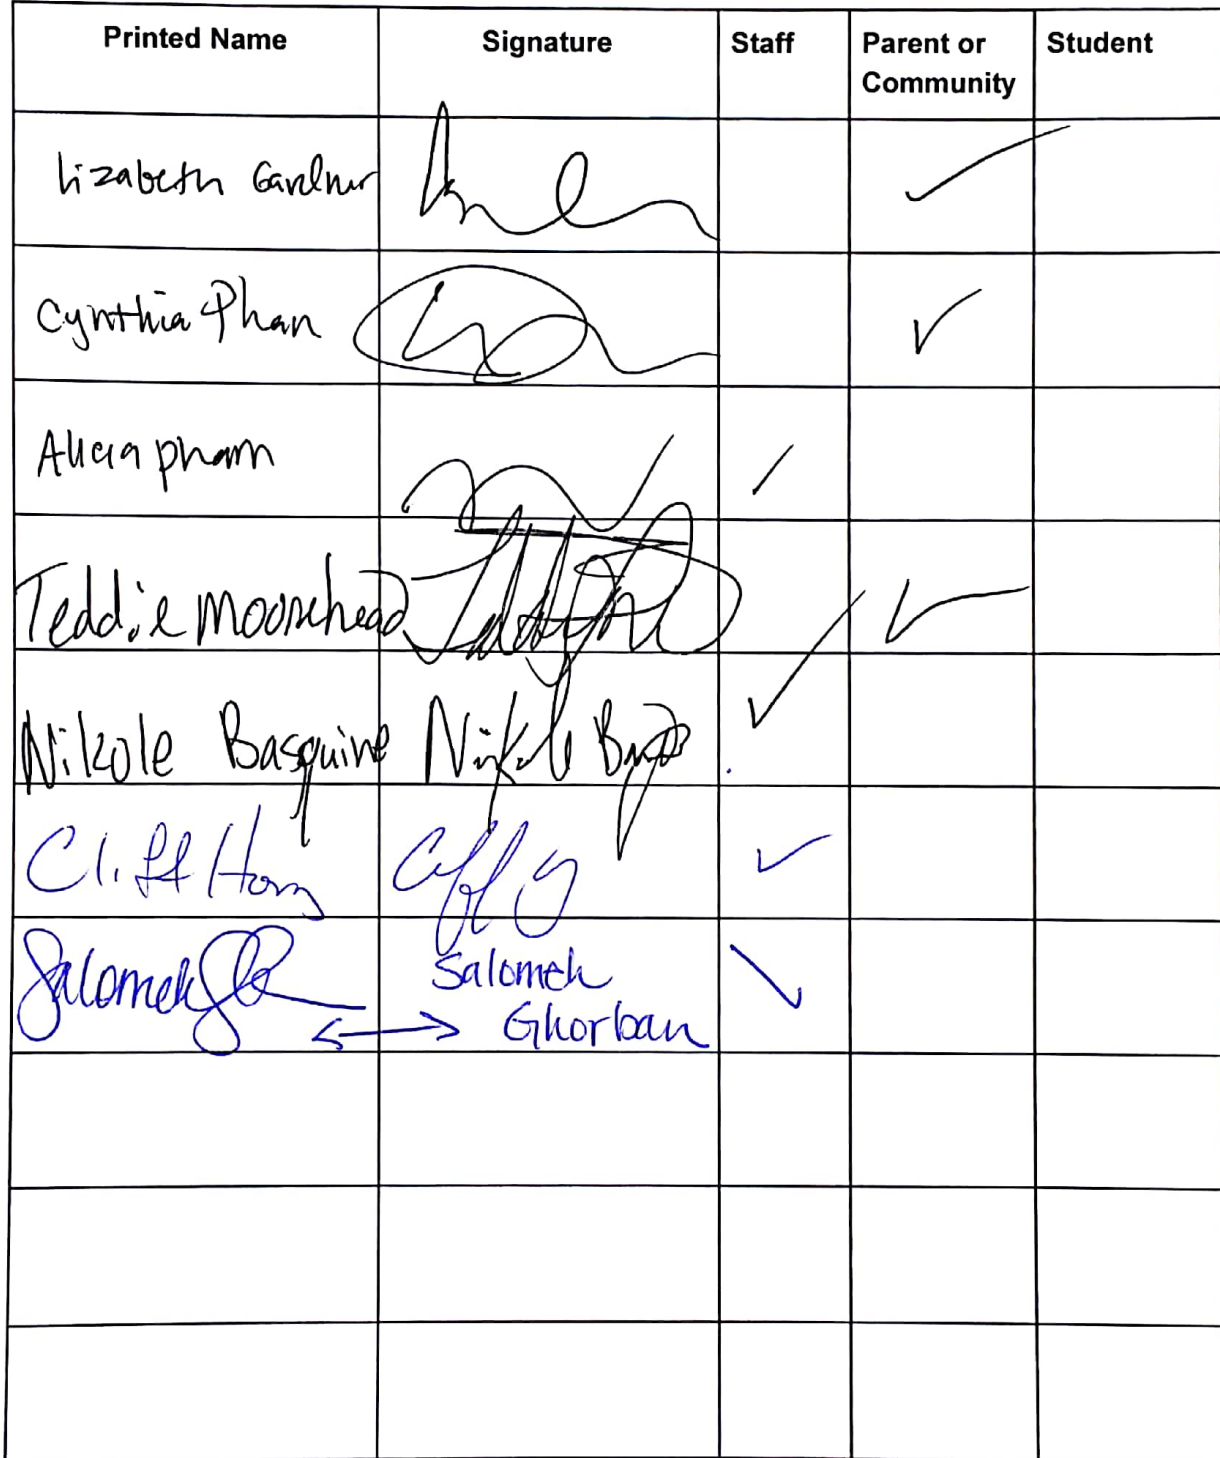 Printed Name Signature Staff Parent or Community Student
Lizabeth Gardner
Cynthia Phan
Alicia pham
Teddie Moorehead
Nikole Basquine Nikole
Cliff Hong
Salomeh Salomeh
Ghorban